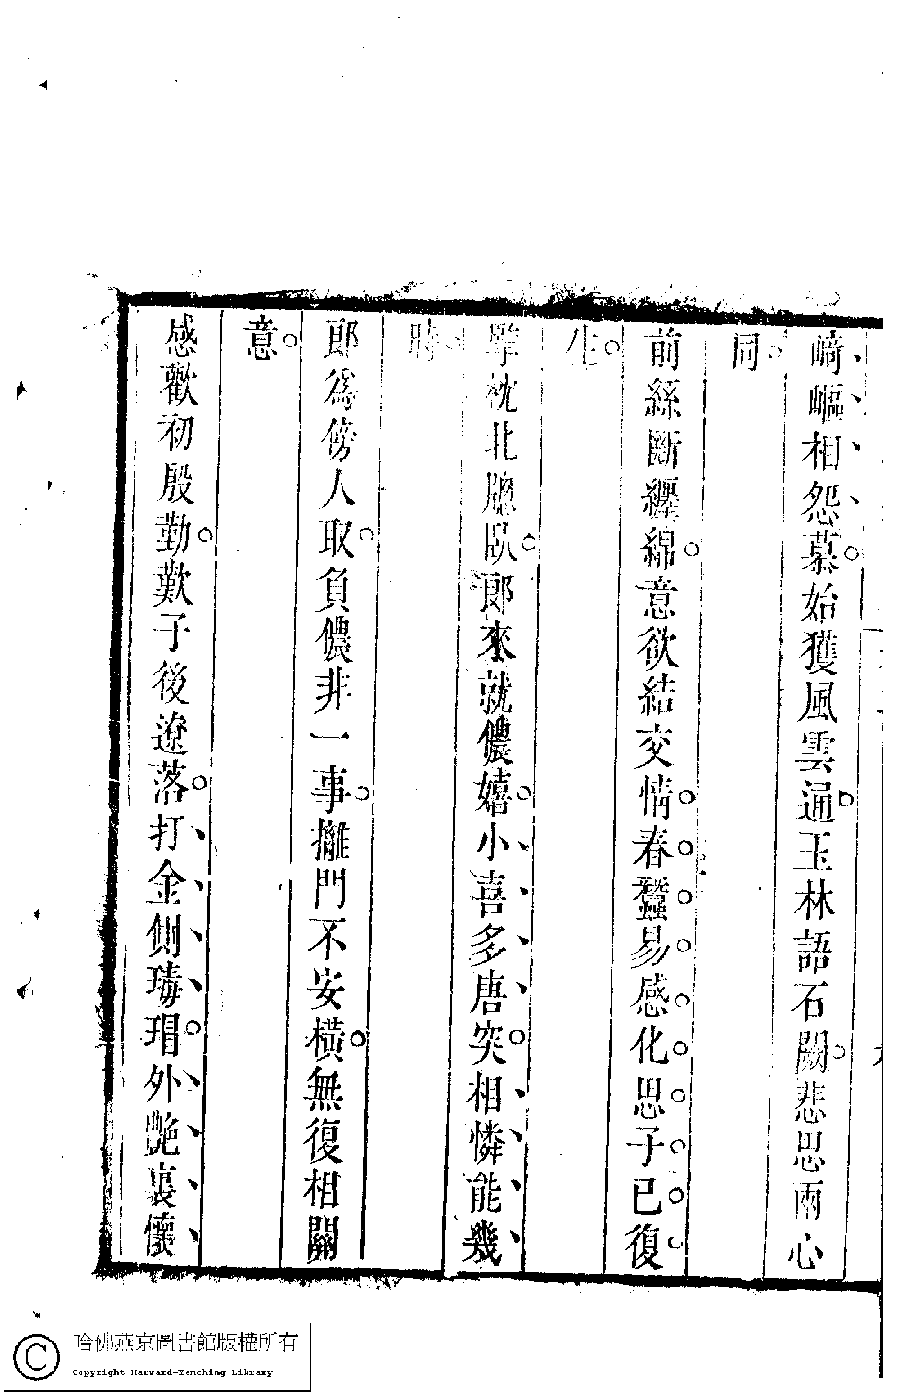 崎嶇相怨慕始獲風雲通玉林語石闕悲思兩心
同
前絲斷纏綿意欲結交情春蠶易感化思子已復
生
擥枕北牕臥郎來就儂嬉小喜多唐突相憐能幾
時
郎為傍人取負儂非一事攡門不安橫無復相關
意
感歡初殷勤歎子後遼落打金側瑇瑁外艷裏懷
哈佛燕京圖書館版權所有
Copyright Harvard-Yenching Library